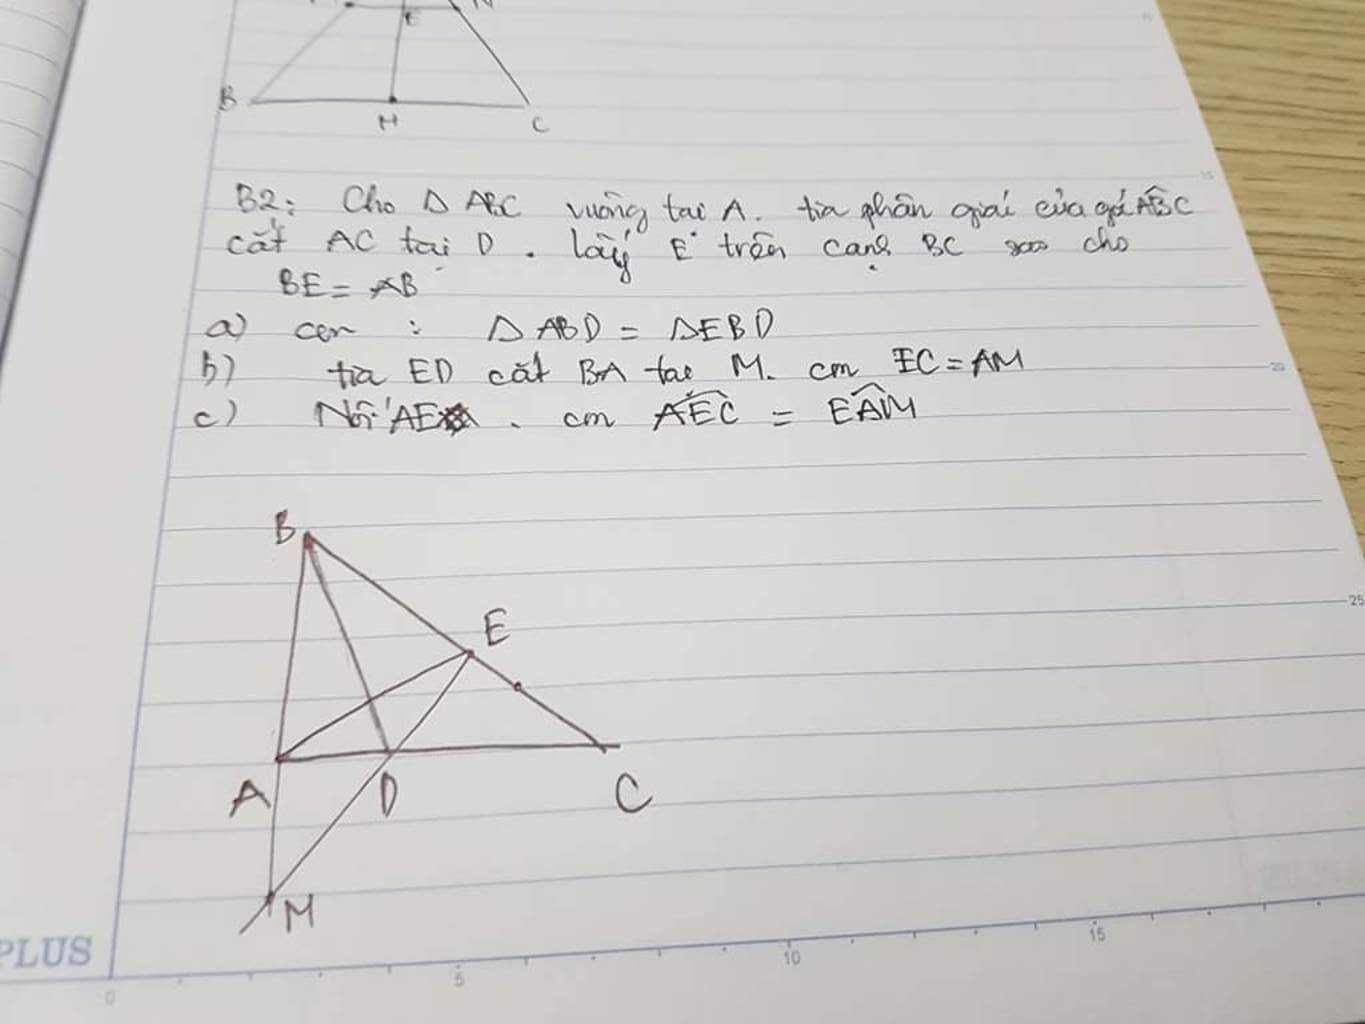 E
B
M
C
B2: Cho Δ ABC vuông tại A. tia phân giác của góc ABC
cắt AC tại D. lấy E trên cạnh BC sao cho
BE = AB
a) cm : Δ ABD = ΔEBD
b) tia ED cắt BA tại M. cm EC = AM
c) Nối AE . cm AEC = EAM
B
E
A
D
C
M
PLUS
0
5
10
15
15
20
25